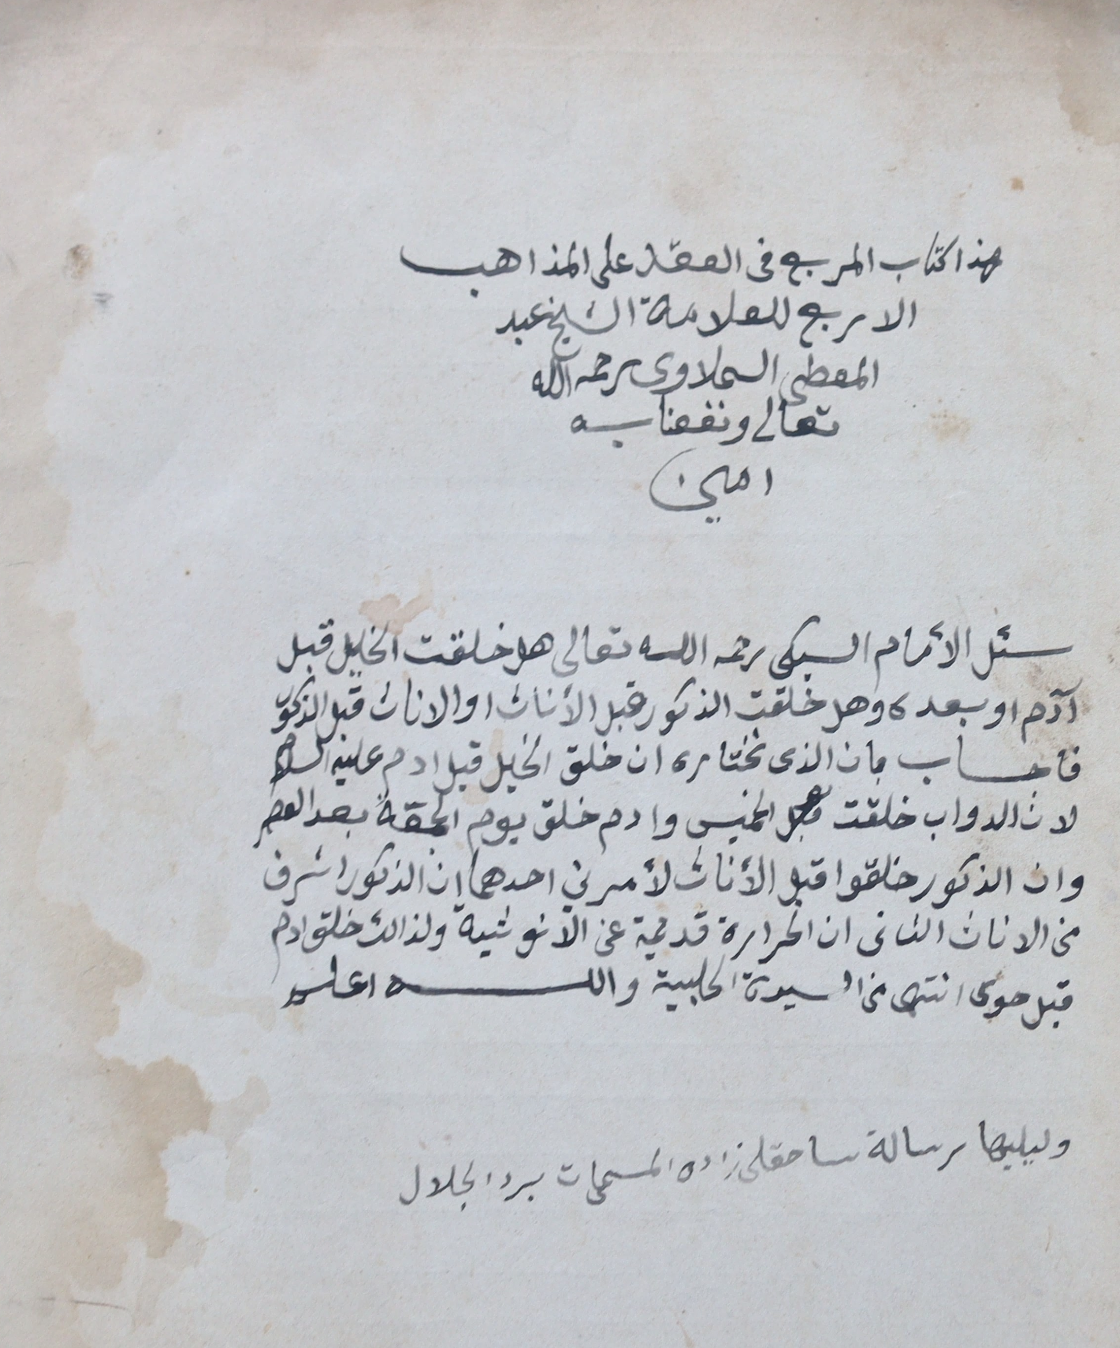 هذا كتاب المربع في الفقه على المذاهب
الاربع للعلامة الشيخ عبد
المعطي السملاوى رحمه الله
تعالى ونفعنا به
امين
سئل الأمام السبكى رحمه الله تعالى هل خلقت الخيل قبل
آدم او بعده وهل خلقت الذكور قبل الأناث او الاناث قبل الذكور
فأجاب بان الذى نختاره ان خلق الخيل قبل ادم عليه السلام
لان الدواب خلقت الخميس وادم خلق يوم الجمعة بعد العصر
وان الذكور خلقوا قبل الأناث لأمرين احدهما ان الذكور اشرف
من الاناث الثانى ان الحرارة قديمة عن الأنوثية ولذالك خلق ادم
قبل حوى انتهى من السيرة الحلبية والله اعلم
وليليها رسالة ساجقلى زاده المسمات برد الجلال